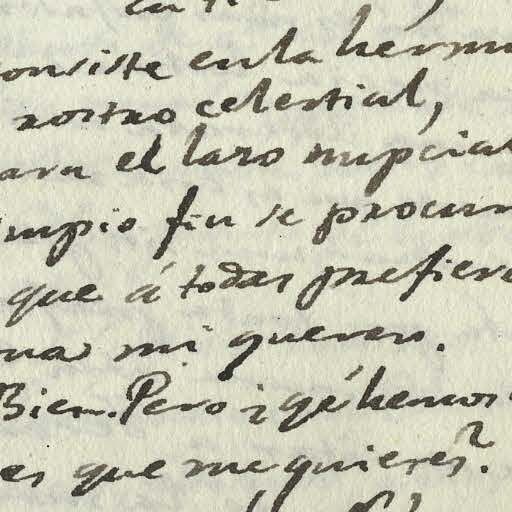 consiste en la hermo
rostro celestial,
para el lazo nupcial
impio fin se procur
que á todas prefiere
mi querer.
Bien. Pero ¿qé hemos
es que me quieres?